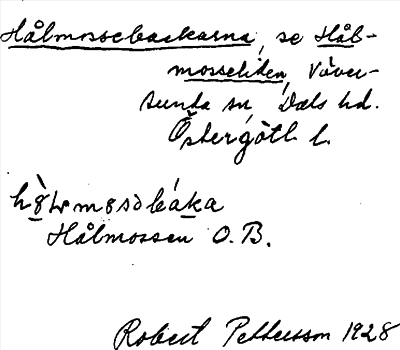 Hålmossebackarna, se Hål-
mosseliden, Väver-
sunda sn, Dals hd.
Östergötl. l.
Hålmossen O.B.
Robert Pettersson 1928